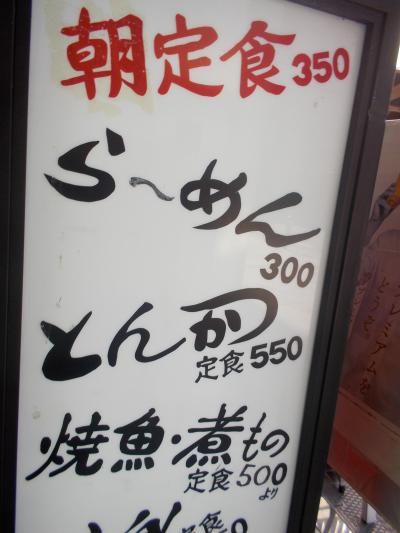 朝定食 350
ら〜めん
300
とんかつ
定食 550
焼魚・煮もの
定食 500
より
プレミアムを
どうぞ。